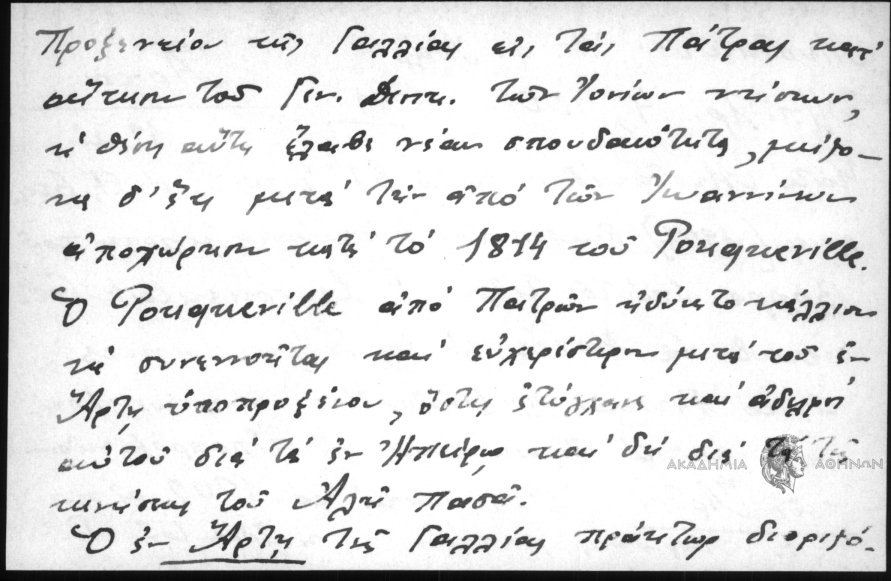 Προξενείον τῆς Γαλλίας εἰς τὰς Πάτρας κατ'
αἴτησιν τοῦ Γεν. Διοικ. τῶν Ἰονίων νήσων,
ἡ θέσις αὕτη ἔλαβε νέαν σπουδαιότητα, μείζο-
να δ' ἔτι μετὰ τὴν ἀπὸ τῶν Ἰωαννίνων
ἀποχώρησιν κατὰ τὸ 1814 τοῦ Pouqueville.
Ὁ Pouqueville ἀπὸ Πατρῶν ἠδύνατο κάλλιον
νὰ συνεννοῆται καὶ εὐχερέστερον μετὰ τοῦ ἐν
Ἄρτῃ ὑποπροξένου, ὅστις ἐτύγχανε καὶ ἀδελφὸς
αὐτοῦ διὰ τὰ ἐν Ἠπείρῳ καὶ δὴ διὰ τὰς
κινήσεις τοῦ Ἀλῆ Πασᾶ.
Ὁ ἐν Ἄρτῃ τῆς Γαλλίας πράκτωρ διοριζό-
ΑΚΑΔΗΜΙΑ ΑΘΗΝΩΝ